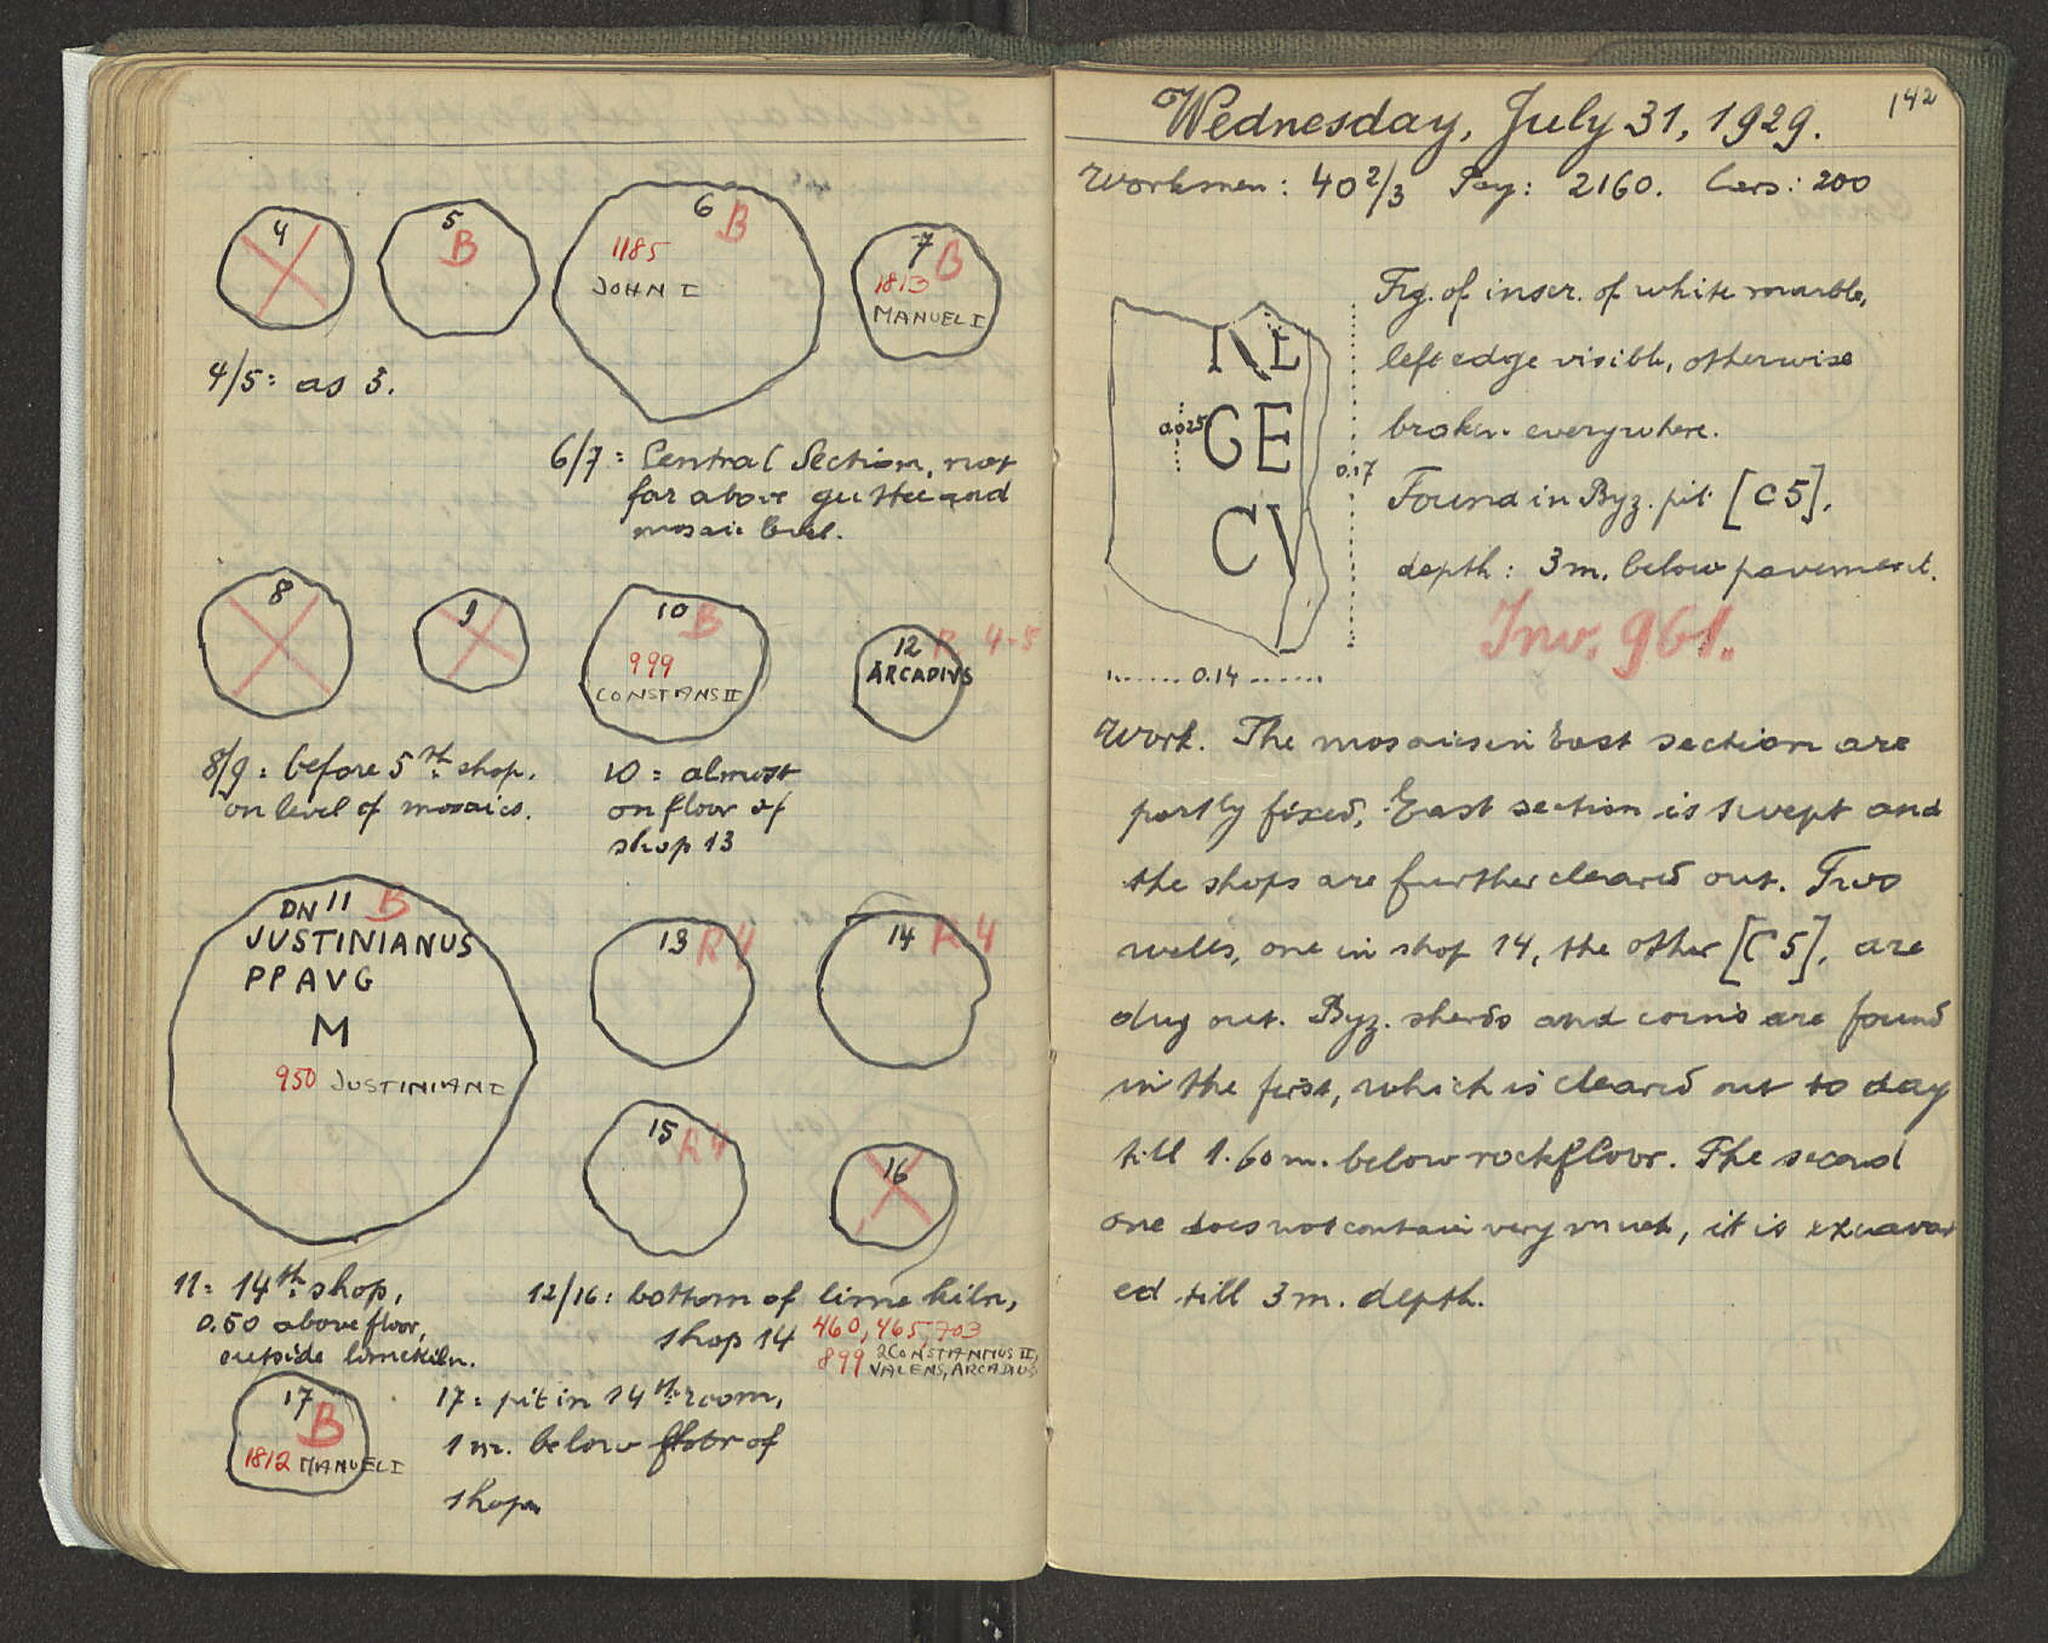 4
5
B
6
B
1185
JOHN I
7
B
1813
MANUEL I
4/5: as 3.
6/7: Central Section, not
far above gutter and
mosaic level.
8
9
10
B
999
CONSTANS II
12
R 4-5
ARCADIVS
8/9: before 5th shop,
on level of mosaics.
10 = almost
on floor of
shop 13
DN 11 B
JUSTINIANUS
PP AVG
M
950 JUSTINIAN I
13
R4
14
R4
15
R4
16
11: 14th shop,
0.50 above floor,
outside limekiln.
12/16: bottom of lime kiln,
shop 14
460, 465, 703
899 2 CONSTANTIUS II,
VALENS, ARCADIUS
17
B
1812 MANUEL I
17: pit in 14th room,
1 m. below floor of
shop
142
Wednesday, July 31, 1929.
Workmen: 40 2/3 Pay: 2160. Cars: 200
NE
GE
CV
0.025
0.17
0.14
Frg. of inscr. of white marble,
left edge visible, otherwise
broken everywhere.
Found in Byz. pit [C5],
depth: 3m. below pavement.
Inv. 961.
Work. The mosaics in East section are
partly fixed, East section is swept and
the shops are further cleared out. Two
wells, one in shop 14, the other [C5], are
dug out. Byz. sherds and coins are found
in the first, which is cleared out to day
till 1.60m. below rockfloor. The second
one does not contain very much, it is excavat
ed till 3 m. depth.